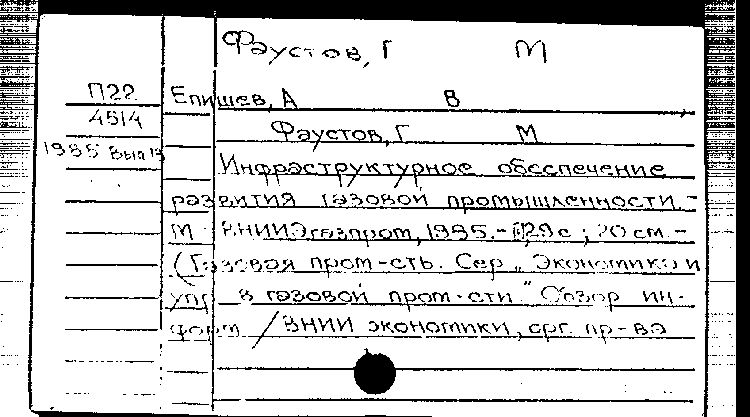 Фаустов, Г М
П22 Епишев, А В
4514 Фаустов, Г М
1985 Вып 13 Инфраструктурное обеспечение
развития газовой промышленности.-
М ВНИИЭгазпром, 1985.- 29 с ; 20 см.-
(Газовая пром-сть. Сер „Экономика и
упр в газовой пром-сти." Обзор ин-
форм / ВНИИ экономики, орг. пр-ва